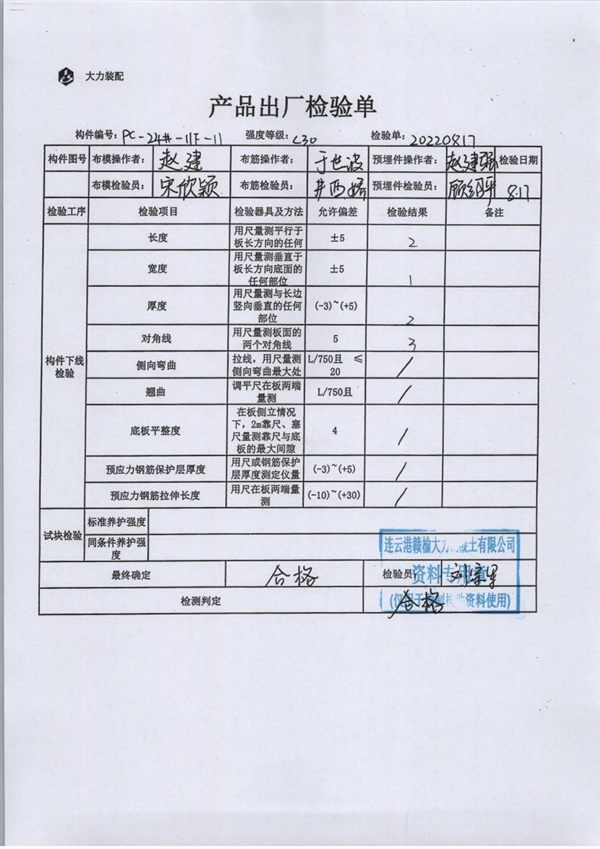 大力装配
产品出厂检验单
构件编号: PC-24#-11F-11 强度等级: C30 检验单: 20220817
构件图号 布模操作者: 赵建 布筋操作者: 于世波 预埋件操作者: 赵建强 检验日期
布模检验员: 宋欣颖 布筋检验员: 预埋件检验员: 8.17
检验工序 检验项目 检验器具及方法 允许偏差 检验结果 备注
构件下线检验
长度 用尺量测平行于板长方向的任何 ±5 2
宽度 用尺量测垂直于板长方向底面的任何部位 ±5 1
厚度 用尺量测与长边竖向垂直的任何部位 (-3)~(+5) 2
对角线 用尺量测板面的两个对角线 5 3
侧向弯曲 拉线，用尺量测侧向弯曲最大处 L/750且 ≤20 /
翘曲 调平尺在板两端量测 L/750且 /
底板平整度 在板侧立情况下，2m靠尺、塞尺量测靠尺与底板的最大间隙 4 /
预应力钢筋保护层厚度 用尺或钢筋保护层厚度测定仪量 (-3)~(+5) /
预应力钢筋拉伸长度 用尺在板两端量测 (-10)~(+30) /
试块检验 标准养护强度
同条件养护强度
连云港赣榆大力 土有限公司
最终确定 合格 检验员:
资料专用章
检测判定 合格
(仅 资料使用)